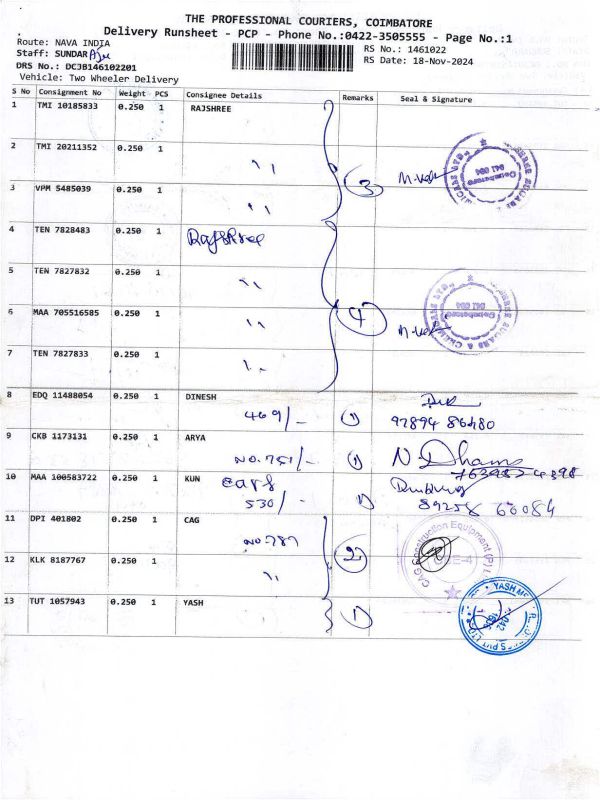 THE PROFESSIONAL COURIERS, COIMBATORE
Delivery Runsheet - PCP - Phone No.:0422-3505555 - Page No.:1
Route: NAVA INDIA
RS No.: 1461022
Staff: SUNDAR
RS Date: 18-Nov-2024
DRS No.: DCJB146102201
Vehicle: Two Wheeler Delivery
S No Consignment No Weight PCS Consignee Details Remarks Seal & Signature
1 TMI 10185833 0.250 1 RAJSHREE
2 TMI 20211352 0.250 1 ,,
3 VPM 5485039 0.250 1 ,, 3
4 TEN 7828483 0.250 1 Rajshree
5 TEN 7827832 0.250 1 ,,
6 MAA 705516585 0.250 1 ,, 4
7 TEN 7827833 0.250 1 ,,
8 EDQ 11488054 0.250 1 DINESH
469/- 1 97894 86480
9 CKB 1173131 0.250 1 ARYA
NO.751/- 1 N. Dhams
10 MAA 100583722 0.250 1 KUN
530/- 1 89258 66084
11 DPI 401802 0.250 1 CAG
NO.787
12 KLK 8187767 0.250 1 ,, 2
CAG Construction Equipment (P)
13 TUT 1057943 0.250 1 YASH 1
YASH